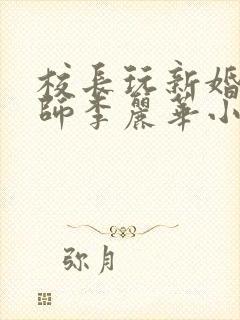 校長玩新婚
師李麗華小
弥月